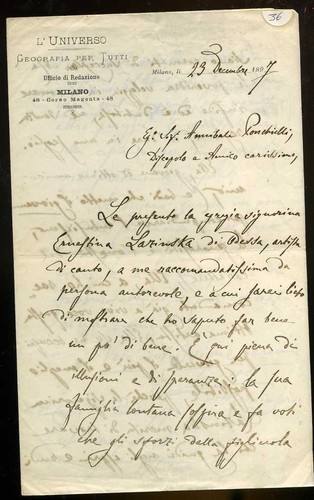 36
L'UNIVERSO
GEOGRAFIA PER TUTTI
Ufficio di Redazione
MILANO
48 - Corso Magenta - 48
Milano, li 23 Decembre 1897
Eg. Sig. Annibale Ponchielli,
Discepolo e Amico carissimo,
Le presento la egregia signorina
Ernestina Lazinska di Pesta, artista
di canto, a me raccomandatissima da
persona autorevole, e a cui sarei lieto
di mostrare che ho saputo far bene
un po' di bene. È qui piena di
illusioni e di speranze: la sua
famiglia lontana soffre e fa voti
che gli sforzi della figliuola